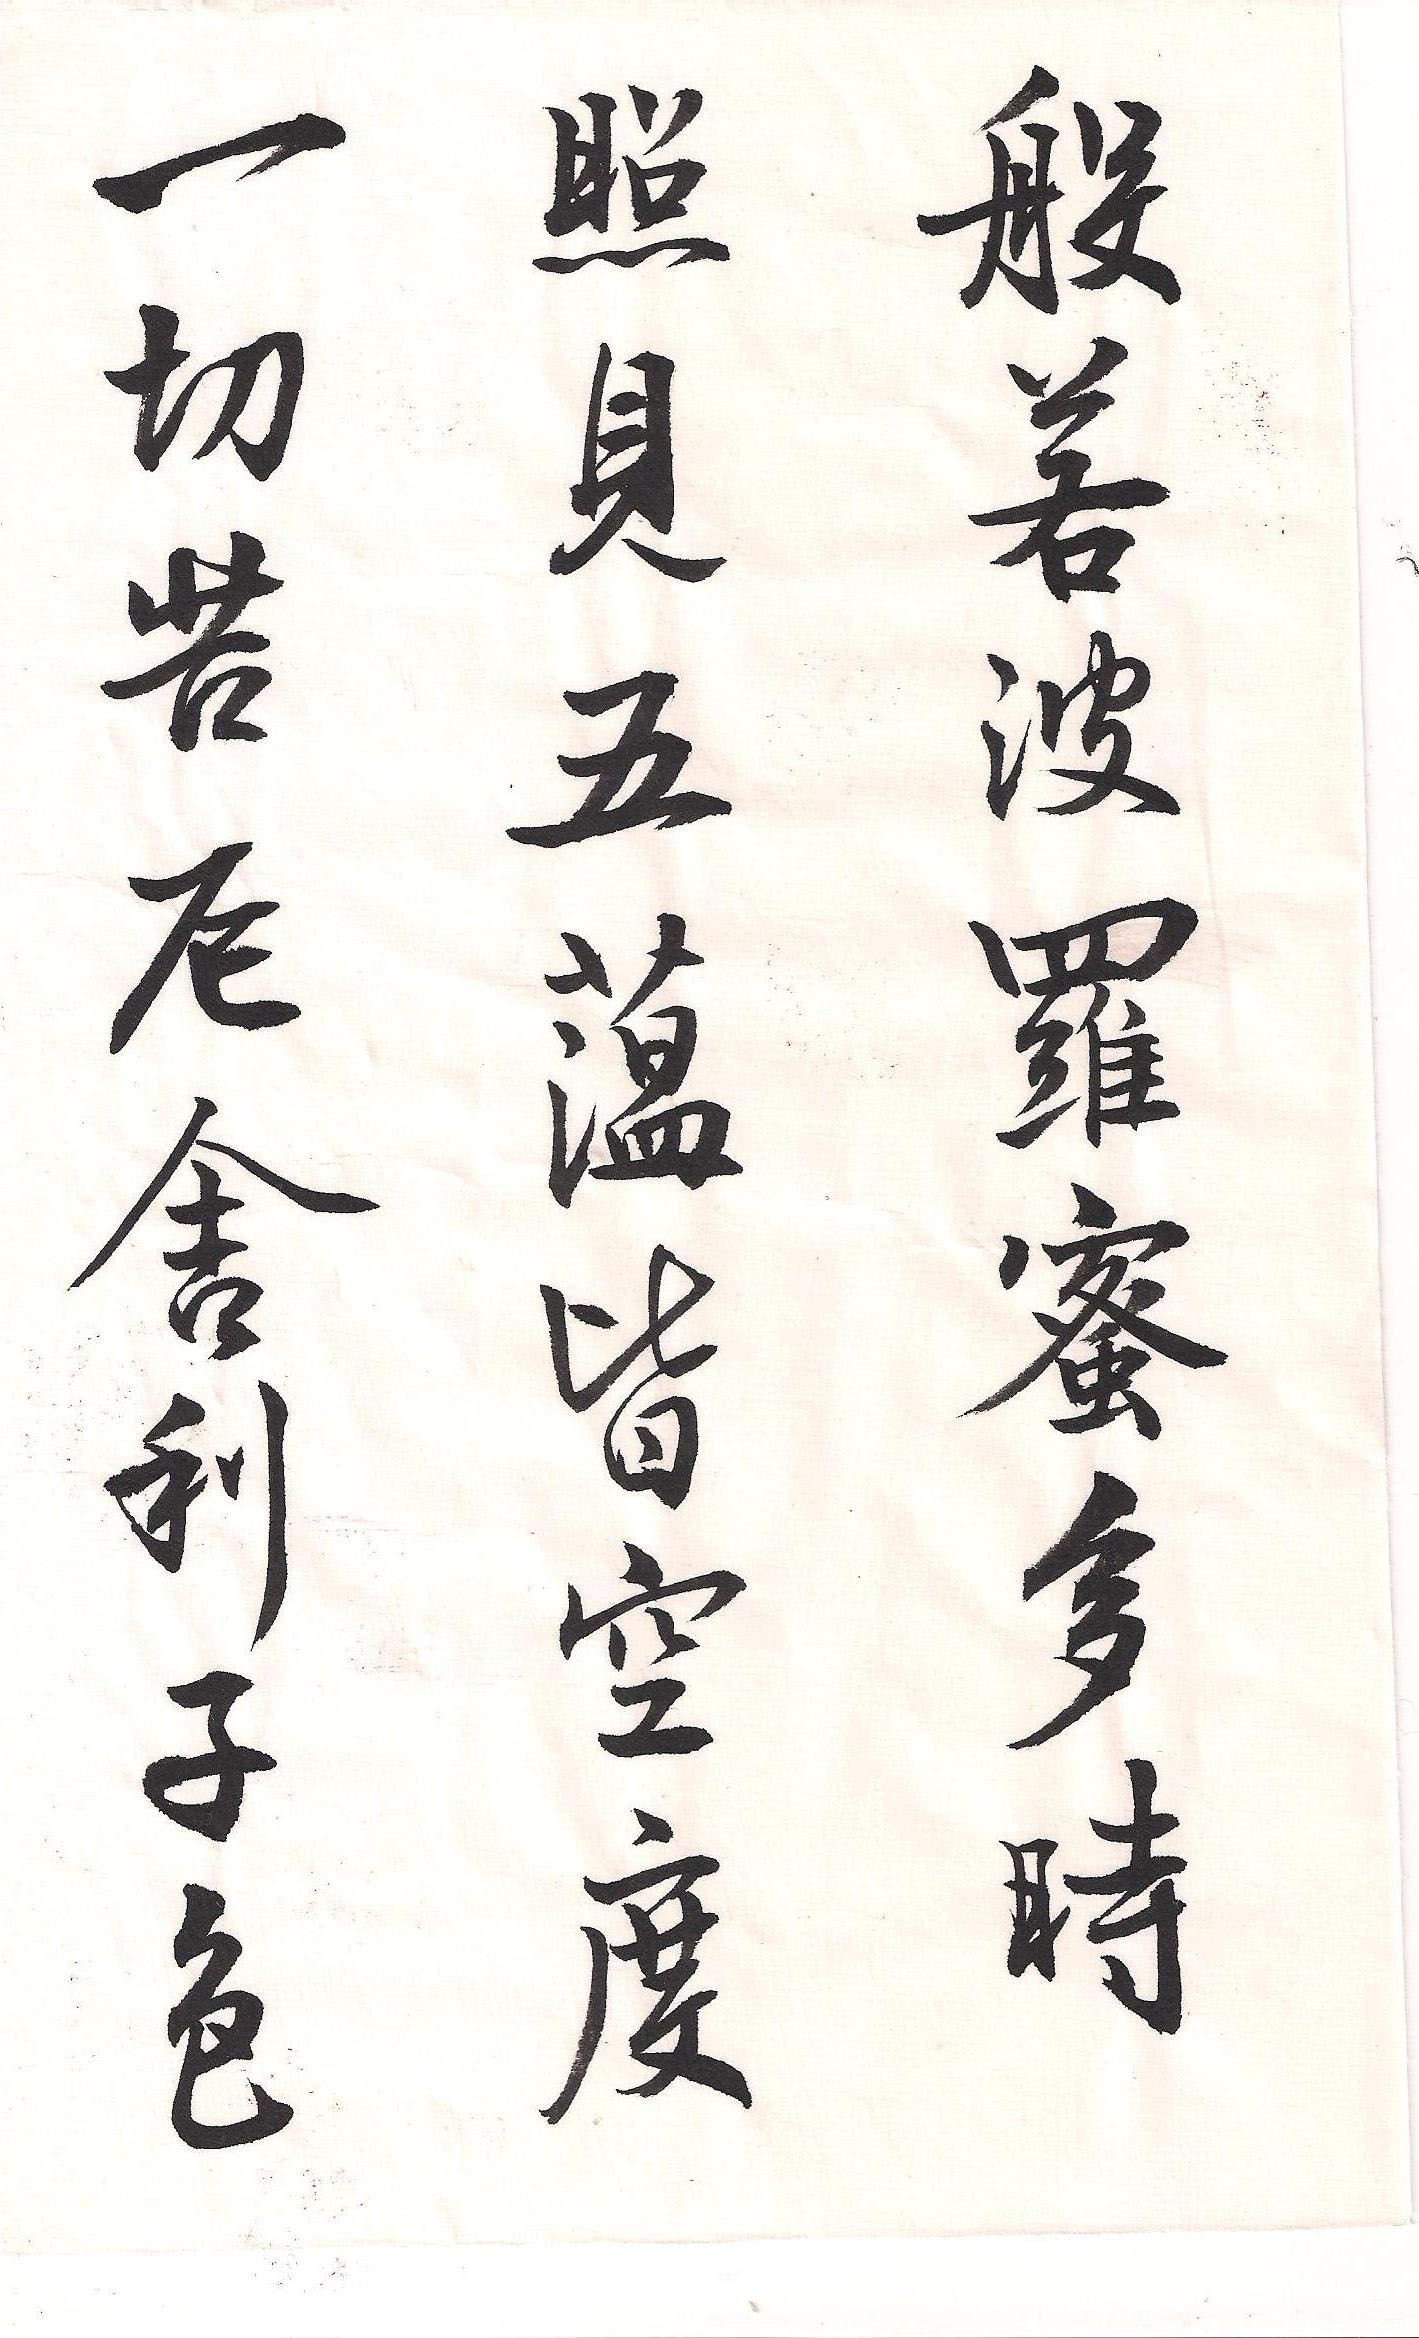 般若波羅蜜多時
照見五蘊皆空度
一切苦厄舍利子色